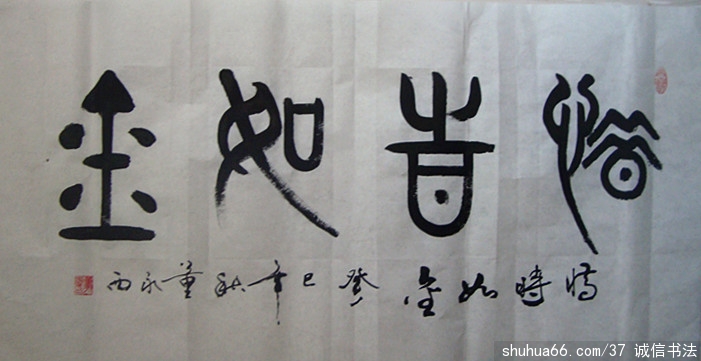 惜旹如金
惜時如金 癸巳年秋 董永西
shuhua66.com/37 诚信书法